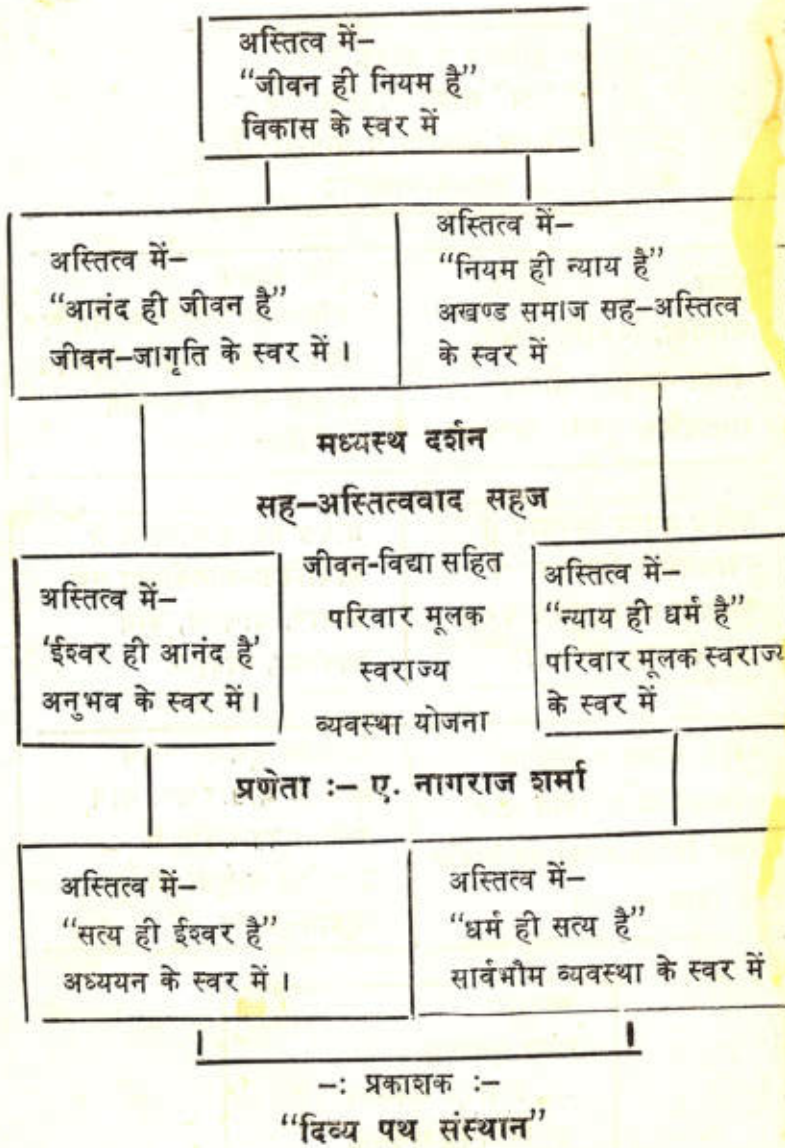 अस्तित्व में–
“जीवन ही नियम है”
विकास के स्वर में
अस्तित्व में–
“आनंद ही जीवन है”
जीवन–जागृति के स्वर में ।
अस्तित्व में–
“नियम ही न्याय है”
अखण्ड समाज सह–अस्तित्व
के स्वर में
मध्यस्थ दर्शन
सह–अस्तित्ववाद सहज
जीवन-विद्या सहित
परिवार मूलक
स्वराज्य
व्यवस्था योजना
अस्तित्व में–
‘ईश्वर ही आनंद है’
अनुभव के स्वर में।
अस्तित्व में–
“न्याय ही धर्म है”
परिवार मूलक स्वराज्य
के स्वर में
प्रणेता :– ए. नागराज शर्मा
अस्तित्व में–
“सत्य ही ईश्वर है”
अध्ययन के स्वर में ।
अस्तित्व में–
“धर्म ही सत्य है”
सार्वभौम व्यवस्था के स्वर में
–: प्रकाशक :–
“दिव्य पथ संस्थान”